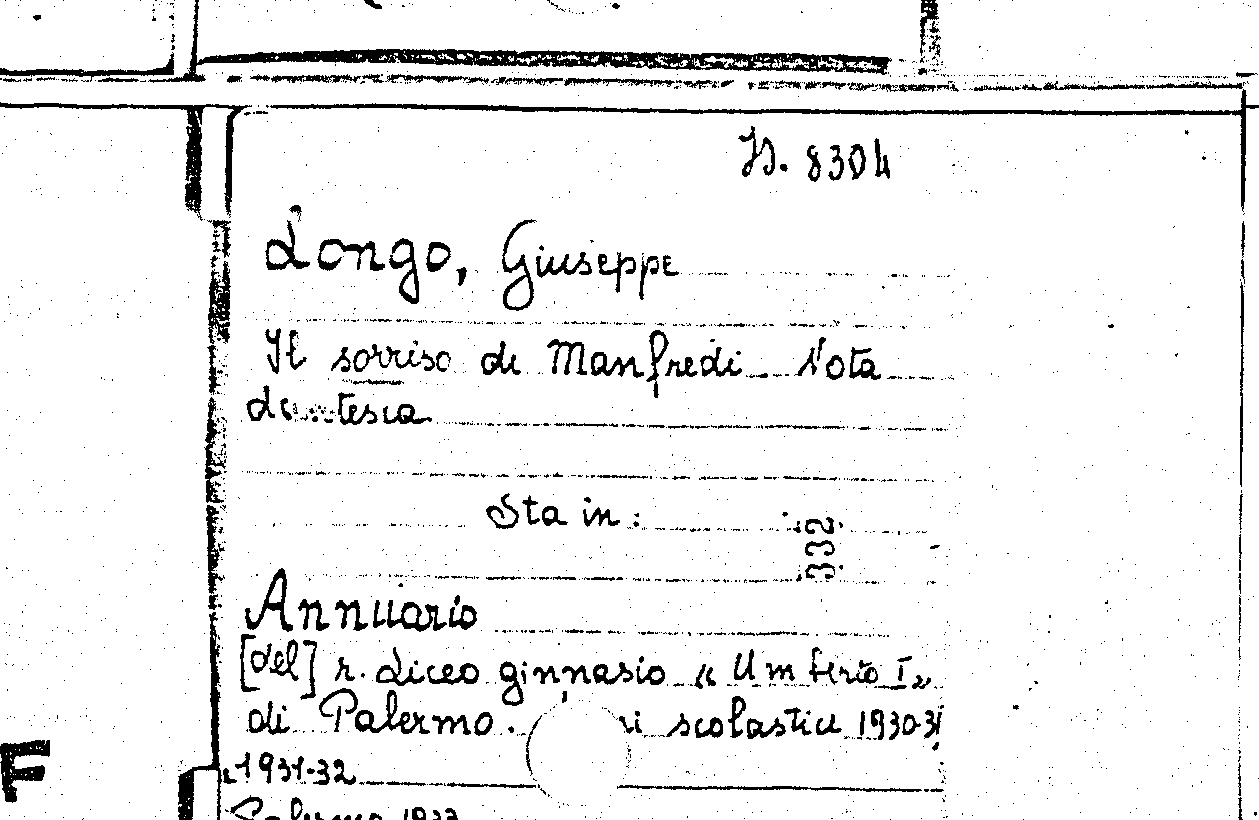 B. 8304
Longo, Giuseppe
Il sorriso di Manfredi Nota
dantesca
Sta in:
332
Annuario
[del] r. Liceo ginnasio « Umberto I»
di Palermo. scolastici 1930-31
1931-32
Palermo 1933
F